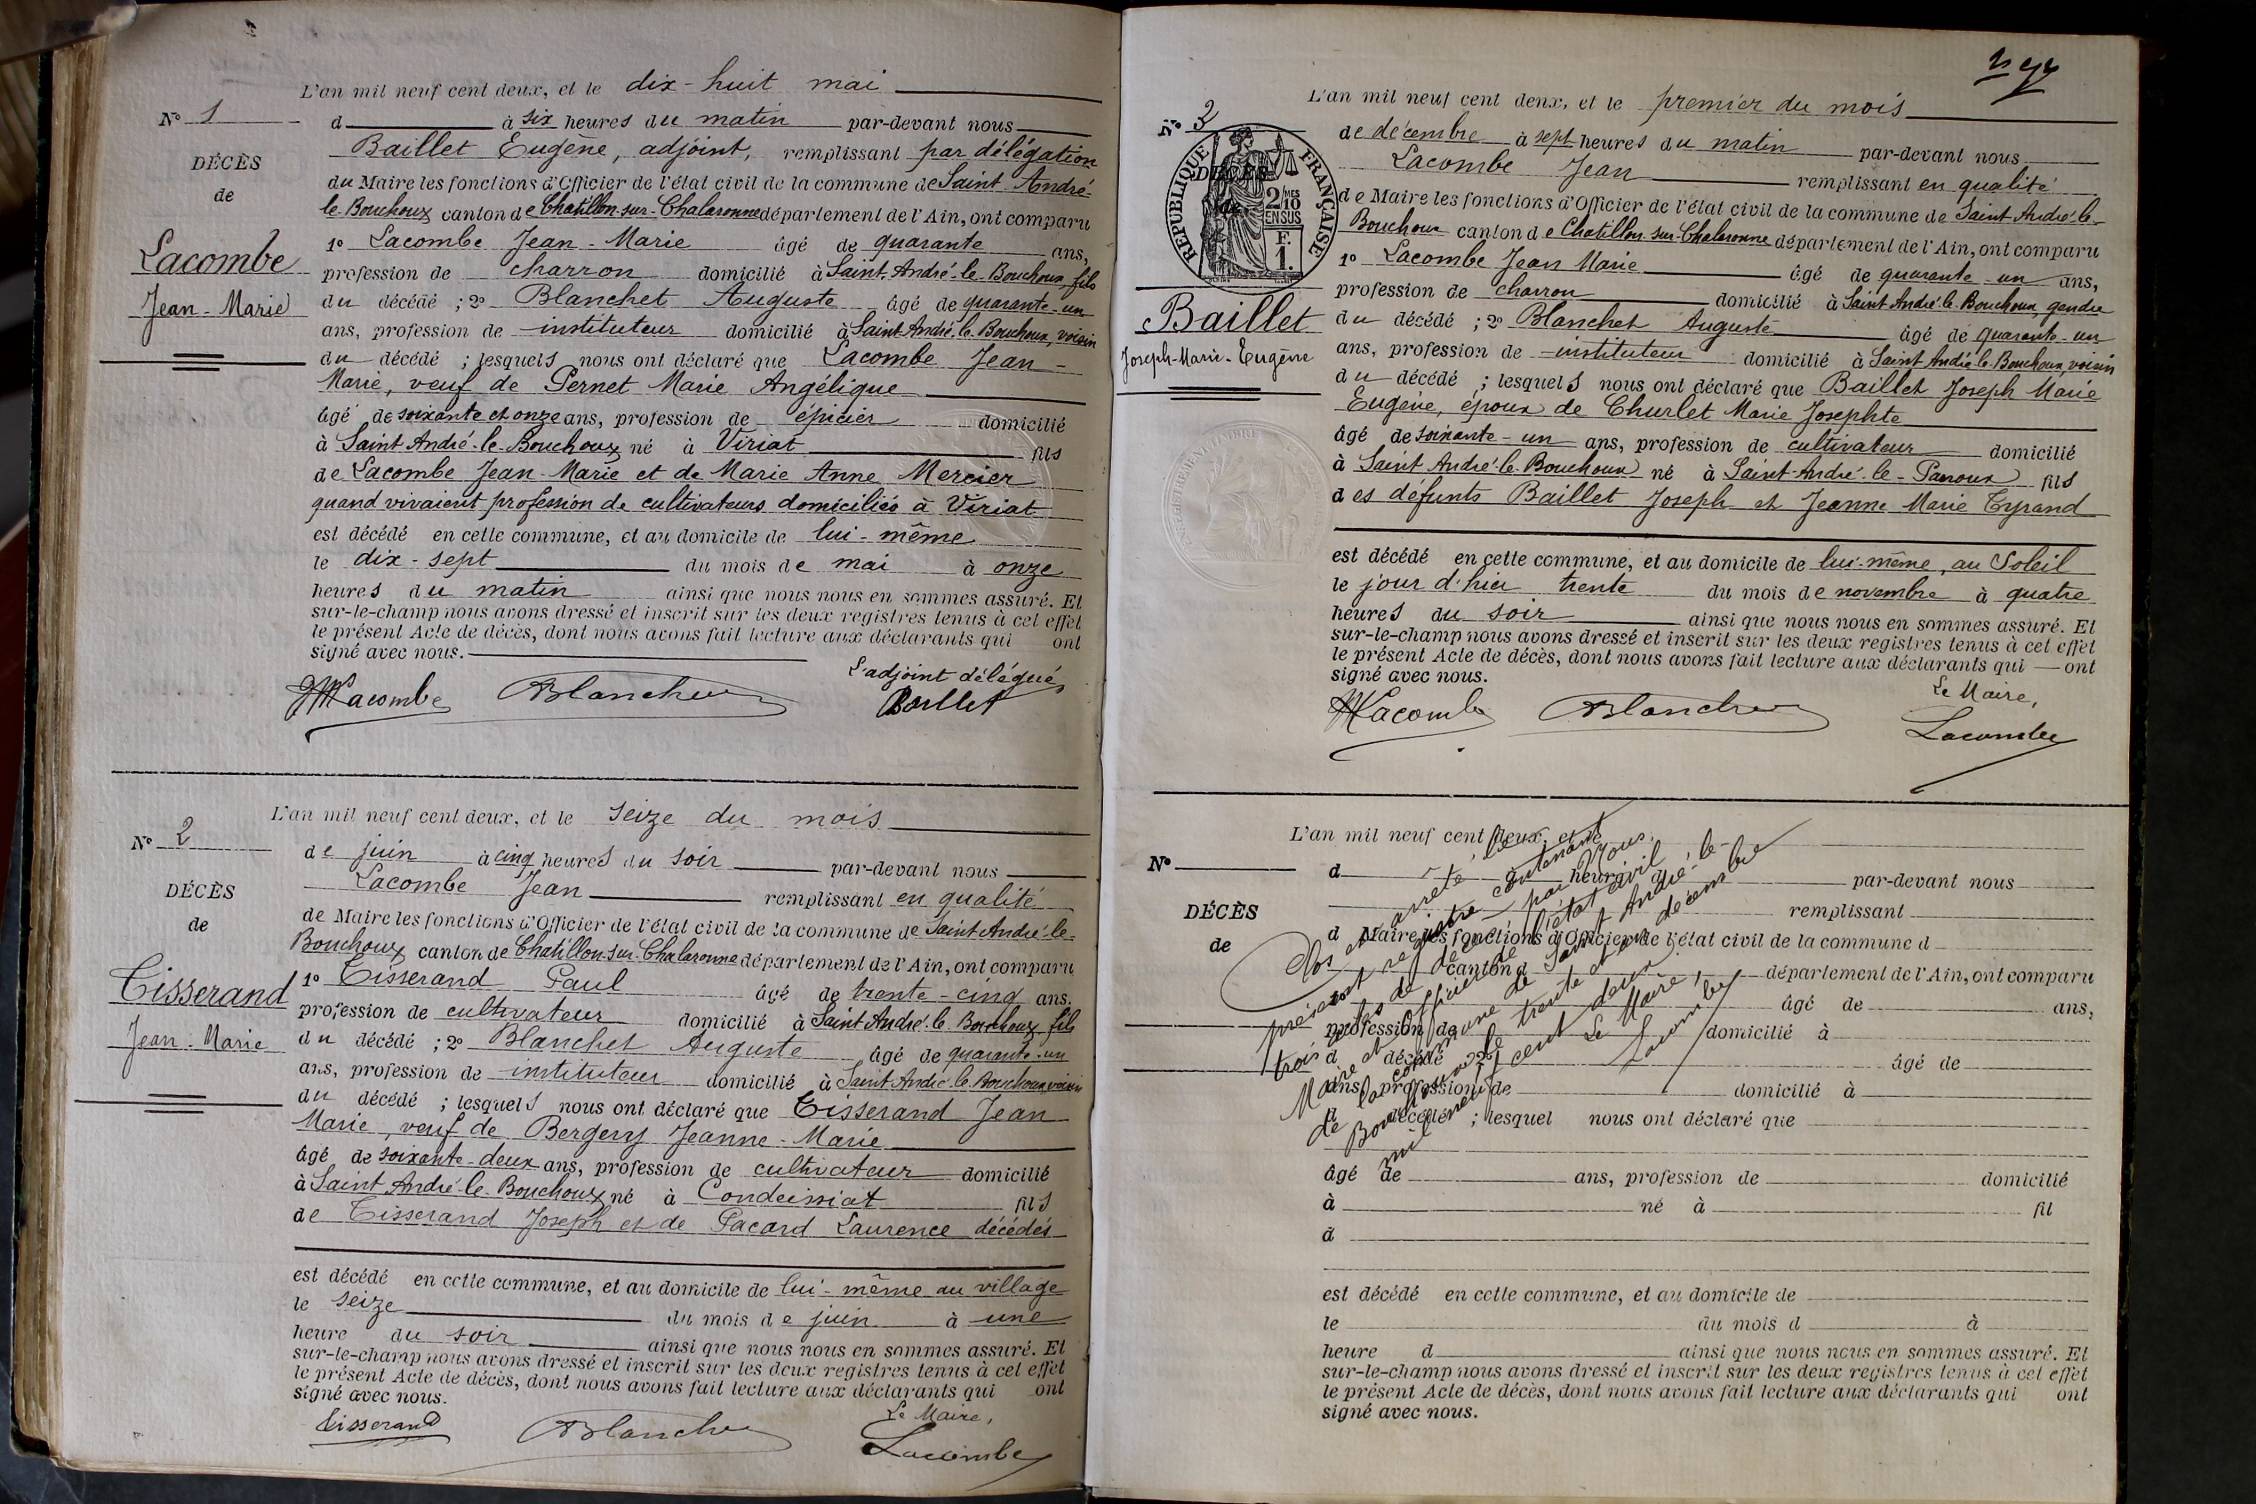 L'an mil neuf cent deux, et le dix-huit mai
N° 1
d à six heures du matin par-devant nous
DÉCÈS
de
Lacombe
Jean-Marie
Baillet Eugène, adjoint, remplissant par délégation
du Maire les fonctions d'Officier de l'état civil de la commune de Saint André-
le-Bouchoux canton de Chatillon-sur-Chalaronne département de l'Ain, ont comparu
1° Lacombe Jean-Marie âgé de quarante ans,
profession de charron domicilié à Saint-André-le-Bouchoux, fils
du décédé ; 2° Blanchet Auguste âgé de quarante-un
ans, profession de instituteur domicilié à Saint André-le-Bouchoux, voisin
du décédé ; lesquels nous ont déclaré que Lacombe Jean-
Marie, veuf de Pernet Marie Angélique
âgé de soixante et onze ans, profession de épicier domicilié
à Saint André-le-Bouchoux né à Viriat fils
de Lacombe Jean-Marie et de Marie Anne Mercier
quand vivaient profession de cultivateurs domiciliés à Viriat
est décédé en cette commune, et au domicile de lui-même
le dix-sept du mois de mai à onze
heures du matin ainsi que nous nous en sommes assuré. Et
sur-le-champ nous avons dressé et inscrit sur les deux registres tenus à cet effet
le présent Acte de décès, dont nous avons fait lecture aux déclarants qui ont
signé avec nous.
L'adjoint délégué,
JMLacombe Blanchet Baillet
L'an mil neuf cent deux, et le seize du mois
N° 2
de juin à cinq heures du soir par-devant nous
DÉCÈS
de
Tisserand
Jean-Marie
Lacombe Jean remplissant en qualité
de Maire les fonctions d'Officier de l'état civil de la commune de Saint André-le-
Bouchoux canton de Chatillon-sur-Chalaronne département de l'Ain, ont comparu
1° Tisserand Paul âgé de trente-cinq ans.
profession de cultivateur domicilié à Saint André-le-Bouchoux fils
du décédé ; 2° Blanchet Auguste âgé de quarante-un
ans, profession de instituteur domicilié à Saint André-le-Bouchoux, voisin
du décédé ; lesquels nous ont déclaré que Tisserand Jean
Marie, veuf de Bergery Jeanne-Marie
âgé de soixante-deux ans, profession de cultivateur domicilié
à Saint André-le-Bouchoux né à Condeissiat fils
de Tisserand Joseph et de Pacard Laurence décédés
est décédé en cette commune, et au domicile de lui-même au village
le seize du mois de juin à une
heure du soir ainsi que nous nous en sommes assuré. Et
sur-le-champ nous avons dressé et inscrit sur les deux registres tenus à cet effet
le présent Acte de décès, dont nous avons fait lecture aux déclarants qui ont
signé avec nous.
Le Maire,
Tisserand Blanchet Lacombe
L'an mil neuf cent deux, et le premier du mois
N° 3
de décembre à sept heures du matin par-devant nous
RÉPUBLIQUE FRANÇAISE
2/10 MES
EN SUS
F.
1.
DÉCÈS
de
Baillet
Joseph-Marie-Eugène
Lacombe Jean remplissant en qualité
de Maire les fonctions d'Officier de l'état civil de la commune de Saint André-le-
Bouchoux canton de Chatillon-sur-Chalaronne département de l'Ain, ont comparu
1° Lacombe Jean Marie âgé de quarante-un ans,
profession de charron domicilié à Saint André-le-Bouchoux, gendre
du décédé ; 2° Blanchet Auguste âgé de quarante-un
ans, profession de instituteur domicilié à Saint André-le-Bouchoux, voisin
du décédé ; lesquels nous ont déclaré que Baillet Joseph Marie
Eugène, époux de Churlet Marie Josephte
âgé de soixante-un ans, profession de cultivateur domicilié
à Saint André-le-Bouchoux né à Saint-André-le-Panoux fils
des défunts Baillet Joseph et Jeanne Marie Tyrand
est décédé en cette commune, et au domicile de lui-même, au Soleil
le jour d'hier trente du mois de novembre à quatre
heures du soir ainsi que nous nous en sommes assuré. Et
sur-le-champ nous avons dressé et inscrit sur les deux registres tenus à cet effet
le présent Acte de décès, dont nous avons fait lecture aux déclarants qui ont
signé avec nous.
Le Maire,
JMLacombe Blanchet Lacombe
L'an mil neuf cent deux, et le
N°
d à heure d par-devant nous
DÉCÈS
de
remplissant
d Maire les fonctions d'Officier de l'état civil de la commune d
canton d département de l'Ain, ont comparu
1° âgé de ans,
profession de domicilié à
d décédé ; 2° âgé de
ans, profession de domicilié à
d décédé ; lesquel nous ont déclaré que
Clos et arrêté le
présent registre contenant
trois actes de décès par Nous,
Maire et Officier de l'état civil
de la commune de Saint André-le-
Bouchoux le trente et un décembre
mil neuf cent deux.
Le Maire,
Lacombe
âgé de ans, profession de domicilié
à né à fil
d
est décédé en cette commune, et au domicile de
le du mois d à
heure d ainsi que nous nous en sommes assuré. Et
sur-le-champ nous avons dressé et inscrit sur les deux registres tenus à cet effet
le présent Acte de décès, dont nous avons fait lecture aux déclarants qui ont
signé avec nous.